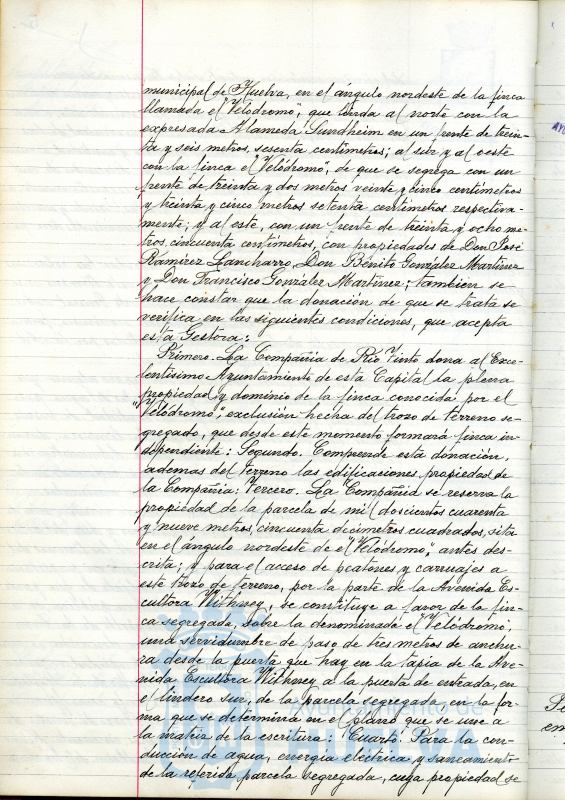 municipal de Huelva, en el ángulo nordeste de la finca
llamada el "Velodromo", que linda al norte con la
expresada Alameda Sundheim en un frente de trein-
ta y seis metros, sesenta centimetros; al sur y al oeste
con la finca el "Velódromo", de que se segrega con un
frente de treinta y dos metros veinte y cinco centimetros
y treinta y cinco metros setenta centimetros respectiva-
mente; y al este, con un frente de treinta y ocho me-
tros, cincuenta centimetros, con propiedades de Don José
Ramirez Lancharro, Don Benito González Martinez
y Don Francisco González Martinez; tambien se
hace constar que la donación de que se trata se
verifica en las siguientes condiciones, que acepta
esta Gestora:
Primero. La Compañia de Rio Tinto dona al Exce-
lentisimo Ayuntamiento de esta Capital la plena
propiedad y dominio de la finca conocida por el
"Velódromo", exclusión hecha del trozo de terreno se-
gregado, que desde este momento formará finca in-
dependiente: Segundo. Comprende esta donación,
ademas del terreno las edificaciones propiedad de
la Compañia: Tercero. La Compañia se reserva la
propiedad de la parcela de mil doscientos cuarenta
y nueve metros, cincuenta decimetros cuadrados, sita
en el ángulo nordeste de el "Velódromo", antes des-
crita; y para el acceso de peatones y carruajes a
este trozo de terreno, por la parte de la Avenida Es-
cultora Withney, se constituye a favor de la fin-
ca segregada, sobre la denominada el "Velódromo",
una servidumbre de paso de tres metros de anchu-
ra desde la puerta que hay en la tapia de la Ave-
nida Escultora Withney a la puerta de entrada, en
el lindero sur, de la parcela segregada, en la for-
ma que se determina en el plano que se une a
la matriz de la escritura: Cuarto. Para la con-
ducción de agua, energia eléctrica y saneamiento
de la referida parcela segregada, cuya propiedad se
Ayuntamiento de
HUELVA